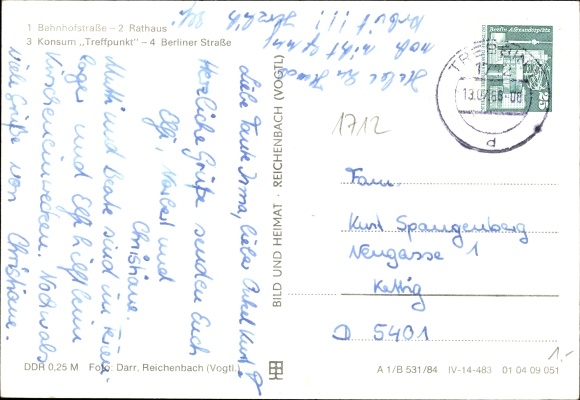 1 Bahnhofstraße – 2 Rathaus
3 Konsum „Treffpunkt" – 4 Berliner Straße
Liebe Tante Irma, lieber Onkel Kurt!
Herzliche Grüße senden Euch
Elfi, Norbert und
Christiane.
Mutti und Beate sind im Ferien-
lager und Elfi hilft beim
Kirscheneinwecken. Nochmals
viele Grüße von Christiane.
noch nicht
BILD UND HEIMAT · REICHENBACH (VOGTL)
TREBBIN
13.07.88-08
d
25
1712
Fam.
Kurt Spangenberg
Neugasse 1
Kettig
D 5401
1.-
DDR 0,25 M Foto: Darr, Reichenbach (Vogtl.)
A 1/B 531/84 IV-14-483 01 04 09 051